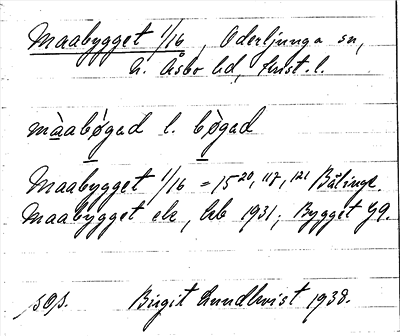 Maabygget 1/16, Oderljunga sn,
N. Åsbo hd, Krist. l.
màabø̀gad l. bø̀gad
Maabygget 1/16 = 15²⁰, ¹¹⁷, ¹²¹ Bälinge.
Maabygget ek, kb 1931; Bygget G9.
sos. Birgit Lundkvist 1938.